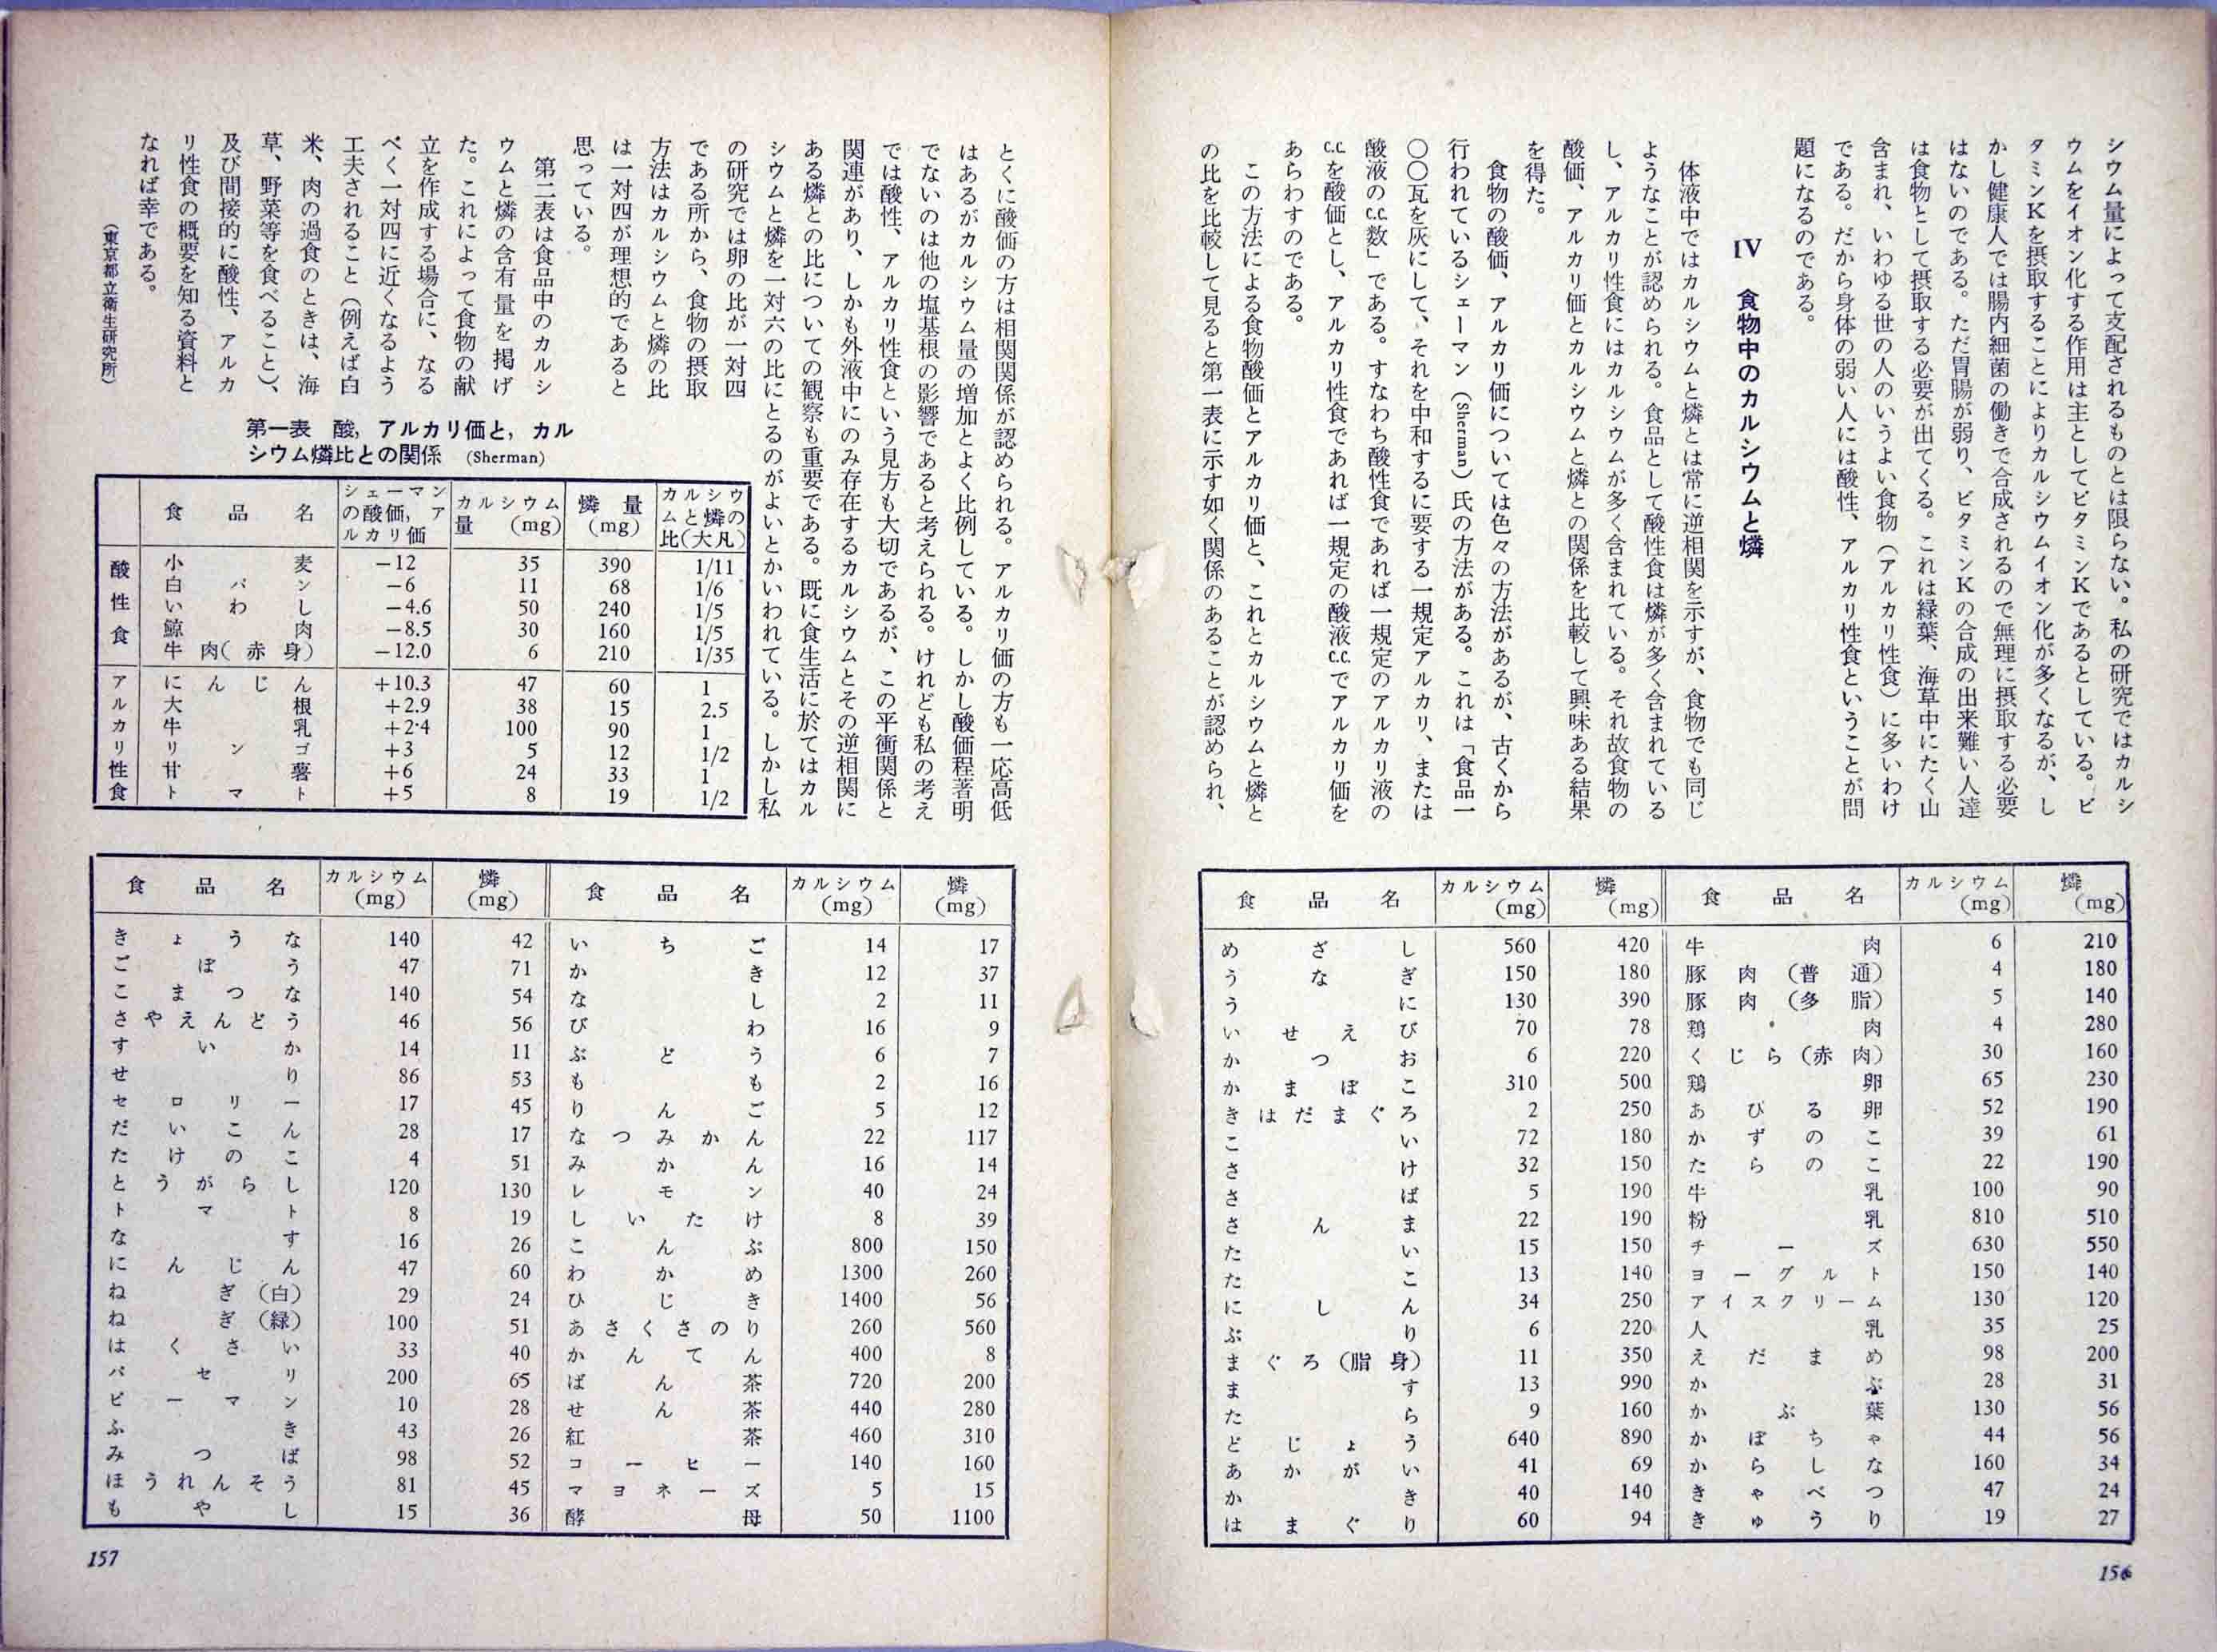 シウム量によって支配されるものとは限らない。私の研究ではカルシ
ウムをイオン化する作用は主としてビタミンKであるとしている。ビ
タミンKを摂取することによりカルシウムイオン化が多くなるが、し
かし健康人では腸内細菌の働きで合成されるので無理に摂取する必要
はないのである。ただ胃腸が弱り、ビタミンKの合成の出来難い人達
は食物として摂取する必要が出てくる。これは緑葉、海草中にたく山
含まれ、いわゆる世の人のいうよい食物（アルカリ性食）に多いわけ
である。だから身体の弱い人には酸性、アルカリ性食ということが問
題になるのである。
IV 食物中のカルシウムと燐
体液中ではカルシウムと燐とは常に逆相関を示すが、食物でも同じ
ようなことが認められる。食品として酸性食は燐が多く含まれている
し、アルカリ性食にはカルシウムが多く含まれている。それ故食物の
酸価、アルカリ価とカルシウムと燐との関係を比較して興味ある結果
を得た。
食物の酸価、アルカリ価については色々の方法があるが、古くから
行われているシェーマン（Sherman）氏の方法がある。これは「食品一
〇〇瓦を灰にして、それを中和するに要する一規定アルカリ、または
酸液のc.c.数」である。すなわち酸性食であれば一規定のアルカリ液の
c.c.を酸価とし、アルカリ性食であれば一規定の酸液c.c.でアルカリ価を
あらわすのである。
この方法による食物酸価とアルカリ価と、これとカルシウムと燐と
の比を比較して見ると第一表に示す如く関係のあることが認められ、
食品名 カルシウム(mg) 燐(mg) 食品名 カルシウム(mg) 燐(mg)
めざし 560 420 牛肉 6 210
うなぎ 150 180 豚肉（普通） 4 180
うに 130 390 豚肉（多脂） 5 140
いせえび 70 78 鶏肉 4 280
かつお 6 220 くじら（赤肉） 30 160
かまぼこ 310 500 鶏卵 65 230
きはだまぐろ 2 250 あひる卵 52 190
こい 72 180 かずのこ 39 61
さけ 32 150 たらのこ 22 190
さば 5 190 牛乳 100 90
さんま 22 190 粉乳 810 510
たい 15 150 チーズ 630 550
たこ 13 140 ヨーグルト 150 140
にしん 34 250 アイスクリーム 130 120
ぶり 6 220 人乳 35 25
まぐろ（脂身） 11 350 えだまめ 98 200
ます 13 990 かぶ 28 31
たら 9 160 かぶ葉 130 56
どじょう 640 890 かぼちゃ 44 56
あかがい 41 69 からしな 160 34
かき 40 140 きゃべつ 47 24
はまぐり 60 94 きゅうり 19 27
156
とくに酸価の方は相関関係が認められる。アルカリ価の方も一応高低
はあるがカルシウム量の増加とよく比例している。しかし酸価程著明
でないのは他の塩基根の影響であると考えられる。けれども私の考え
では酸性、アルカリ性食という見方も大切であるが、この平衝関係と
関連があり、しかも外液中にのみ存在するカルシウムとその逆相関に
ある燐との比についての観察も重要である。既に食生活に於てはカル
シウムと燐を一対六の比にとるのがよいとかいわれている。しかし私
の研究では卵の比が一対四
である所から、食物の摂取
方法はカルシウムと燐の比
は一対四が理想的であると
思っている。
第二表は食品中のカルシ
ウムと燐の含有量を掲げ
た。これによって食物の献
立を作成する場合に、なる
べく一対四に近くなるよう
工夫されること（例えば白
米、肉の過食のときは、海
草、野菜等を食べること）、
及び間接的に酸性、アルカ
リ性食の概要を知る資料と
なれば幸である。
（東京都立衛生研究所）
第一表 酸，アルカリ価と，カル
シウム燐比との関係 (Sherman)
食品名 シェーマンの酸価，アルカリ価 カルシウム量(mg) 燐量(mg) カルシウムと燐の比(大凡)
酸性食
小麦 −12 35 390 1/11
白パン −6 11 68 1/6
いわし −4.6 50 240 1/5
鯨肉 −8.5 30 160 1/5
牛肉(赤身) −12.0 6 210 1/35
アルカリ性食
にんじん +10.3 47 60 1
大根 +2.9 38 15 2.5
牛乳 +2.4 100 90 1
リンゴ +3 5 12 1/2
甘薯 +6 24 33 1
トマト +5 8 19 1/2
食品名 カルシウム(mg) 燐(mg) 食品名 カルシウム(mg) 燐(mg)
きょうな 140 42 いちご 14 17
ごぼう 47 71 かき 12 37
こまつな 140 54 なし 2 11
さやえんどう 46 56 びわ 16 9
すいか 14 11 ぶどう 6 7
せり 86 53 もも 2 16
セロリー 17 45 りんご 5 12
だいこん 28 17 なつみかん 22 117
たけのこ 4 51 みかん 16 14
とうがらし 120 130 レモン 40 24
トマト 8 19 しいたけ 8 39
なす 16 26 こんぶ 800 150
にんじん 47 60 わかめ 1300 260
ねぎ（白） 29 24 ひじき 1400 56
ねぎ（緑） 100 51 あさくさのり 260 560
はくさい 33 40 かんてん 400 8
パセリ 200 65 ばん茶 720 200
ピーマン 10 28 せん茶 440 280
ふき 43 26 紅茶 460 310
みつば 98 52 コーヒー 140 160
ほうれんそう 81 45 マヨネーズ 5 15
もやし 15 36 酵母 50 1100
157